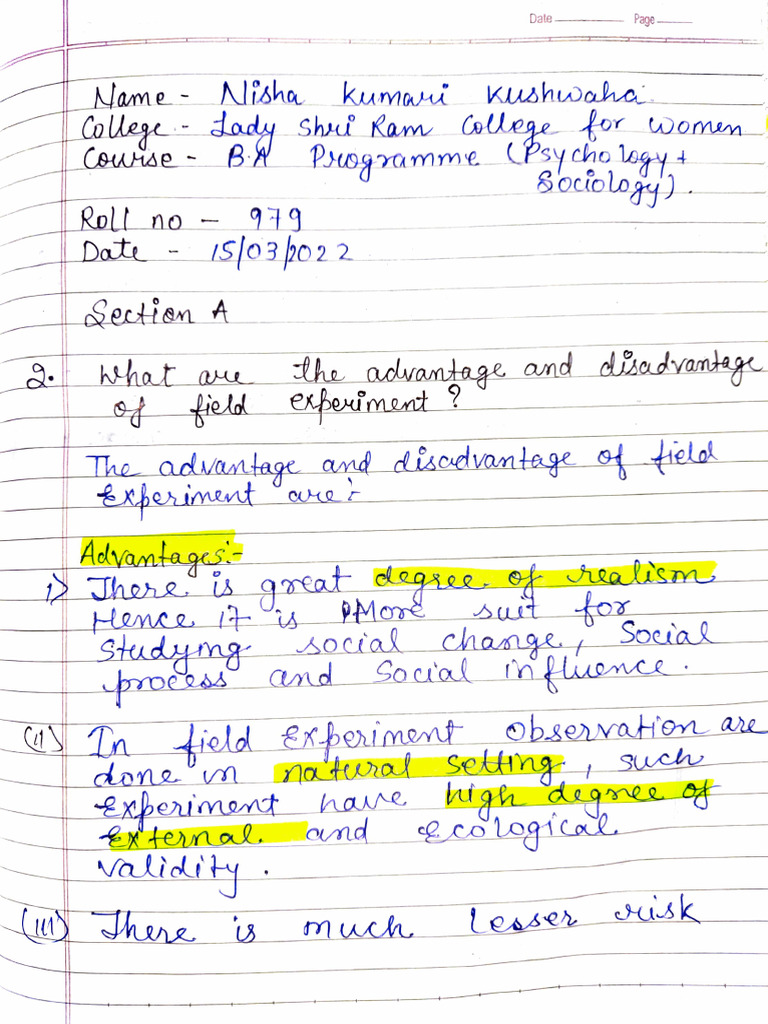 Date Page
Name - Nisha Kumari Kushwaha
College - Lady Shri Ram College for Women
Course - B.A Programme (Psychology +
Sociology).
Roll no - 979
Date - 15/03/2022
Section A
2. What are the advantage and disadvantage
of field experiment?
The advantage and disadvantage of field
Experiment are:-
Advantages:-
i) There is great degree of realism
Hence it is More suit for
Studying social change, Social
process and Social influence.
(ii) In field Experiment Observation are
done in natural setting, such
Experiment have high degree of
External and Ecological
validity.
(iii) There is much lesser risk